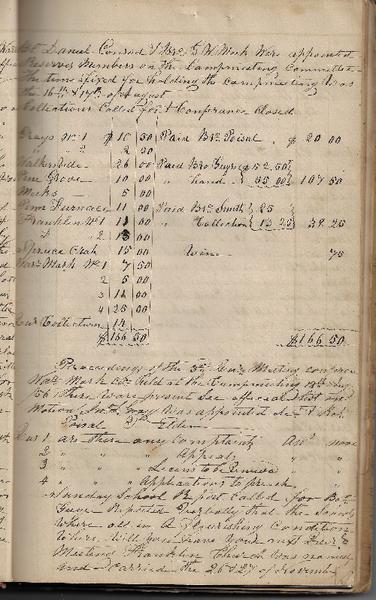 Daniel Conrad & Bro. G. W. Mark were appointed
Reserved Members on the Campmeeting Committee
The time fixed for holding the campmeeting was
the 16th & 17th of August
Collections Called for & Conference Closed
Grays No 1 $ 10 50 Paid Bro. Poisal $ 20 00
" " 2 2 50
26 00 Paid Bro Guyer $ 52.50
Pine Grove 10 00 " hand 55 00 107 50
Meeks 5 00
Pine Furnace 11 00 Paid Bro Smith 25
Franklin No 1 11 00 " Collection 13 25 38 25
" 2 13 00
Spruce Crek 15 00 75
War. Mark No 1 7 50
2 5 00
3 14 00
4 25 00
Collection 14
$166 50 $166 50
Proceedings of the 3rd Qur. Meeting conference
War. Mark Cir. held at the Campmeeting Aug
56 There were present See official list upon
Motion Jno. H. Gray was appointed Sec.
Poisal P. Elder
Ques 1 are there any Complaints Ans none
2 " " " Appeals " "
3 " " " Licens to be Renued " "
4 " " " Applications to preach " "
Sunday School Report Called for Bro
Guyer Reported verbally that the Schools
Where all in A flourishing Condition
Where will you have your next Qur
Meeting Franklin Church was named
and Carried the 26 & 27 of November